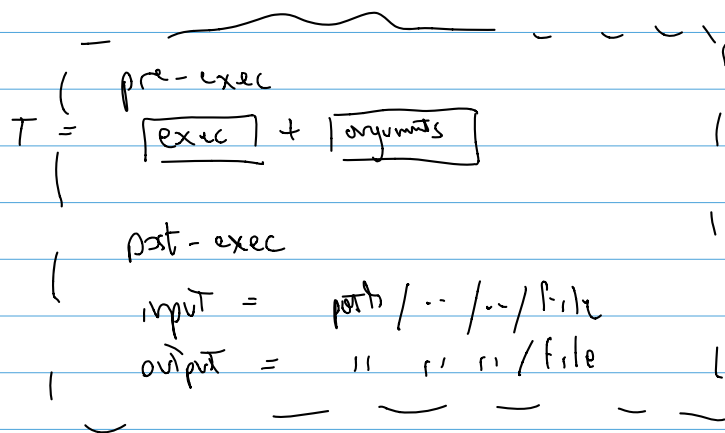 pre-exec
T = exec + arguments
post-exec
input = path / .. / .. / file
output = " " " / file